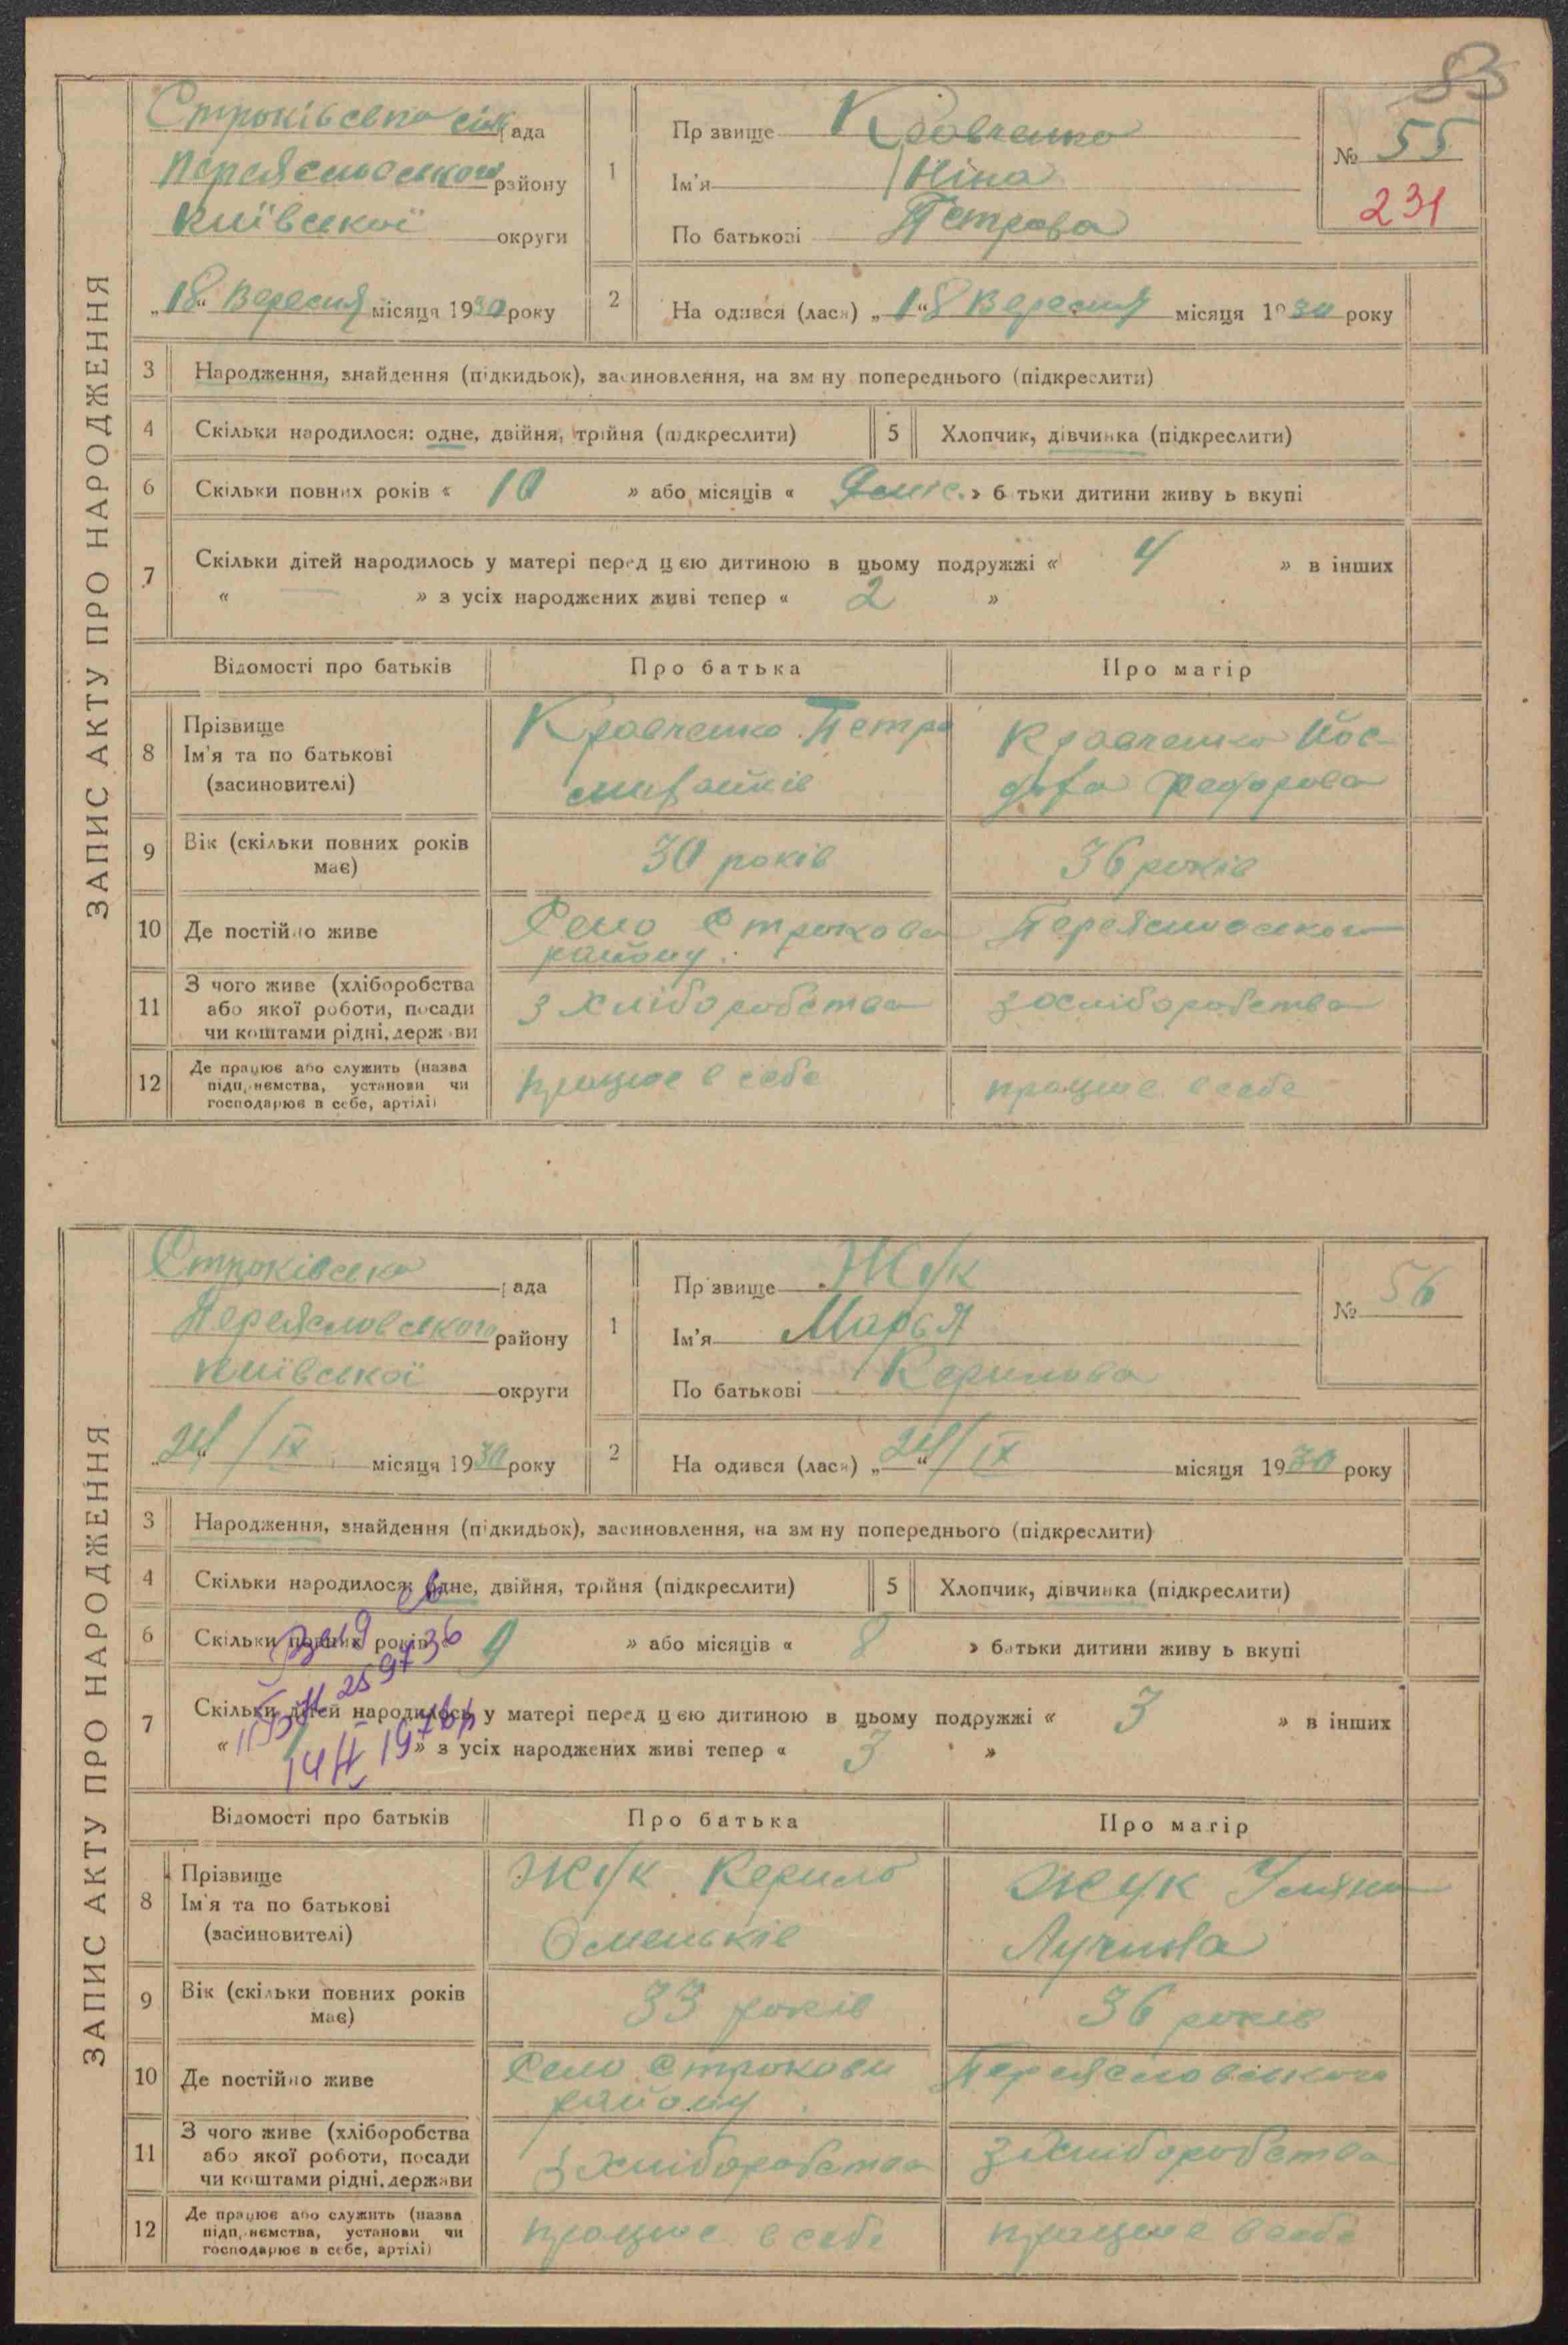 83
ЗАПИС АКТУ ПРО НАРОДЖЕННЯ
Строківська сіль рада
Переяславського району
Київської округи
„18“ Вересня місяця 1930 року
1 Прізвище Кравченко
Ім'я Ніна
По батькові Петрова
№ 55
231
2 Народився (лася) „18“ Вересня місяця 1930 року
3 Народження, знайдення (підкидьок), засиновлення, на зміну попереднього (підкреслити)
4 Скільки народилося: одне, двійня, трійня (підкреслити)
5 Хлопчик, дівчинка (підкреслити)
6 Скільки повних років « 10 » або місяців « » батьки дитини живуть вкупі
7 Скільки дітей народилось у матері перед цією дитиною в цьому подружжі « 4 » в інших
« — » з усіх народжених живі тепер « 2 »
Відомості про батьків Про батька Про матір
8 Прізвище Ім'я та по батькові (засиновителі)
Кравченко Петро
Кравченко Йос-
дофа Федорова
9 Вік (скільки повних років має) 30 років 36 років
10 Де постійно живе Село Строкова Переяславського
району.
11 З чого живе (хліборобства
або якої роботи, посади
чи коштами рідні, держави
з хліборобства з хліборобства
12 Де працює або служить (назва
підприємства, установи чи
господарює в себе, артілі)
працює в себе працює в себе
ЗАПИС АКТУ ПРО НАРОДЖЕННЯ
Строківська рада
Переясловського району
Київської округи
„24“/IX місяця 1930 року
1 Прізвище Жук
Ім'я Марья
По батькові Керилова
№ 56
2 Народився (лася) „24“/IX місяця 1930 року
3 Народження, знайдення (підкидьок), засиновлення, на зміну попереднього (підкреслити)
4 Скільки народилося: одне, двійня, трійня (підкреслити)
5 Хлопчик, дівчинка (підкреслити)
6 Скільки повних років « 9 » або місяців « 8 » батьки дитини живуть вкупі
7 Скільки дітей народилось у матері перед цією дитиною в цьому подружжі « 3 » в інших
« » з усіх народжених живі тепер « 3 »
Відомості про батьків Про батька Про матір
8 Прізвище
Ім'я та по батькові
(засиновителі)
Жук Керило
Омельків
Жук Уляна
Лучина
9 Вік (скільки повних років має) 33 років 36 років
10 Де постійно живе Село Строкови Переясловського
району.
11 З чого живе (хліборобства
або якої роботи, посади
чи коштами рідні, держави
з хліборобства з хліборобства
12 Де працює або служить (назва
підприємства, установи чи
господарює в себе, артілі)
працює в себе працює в себе